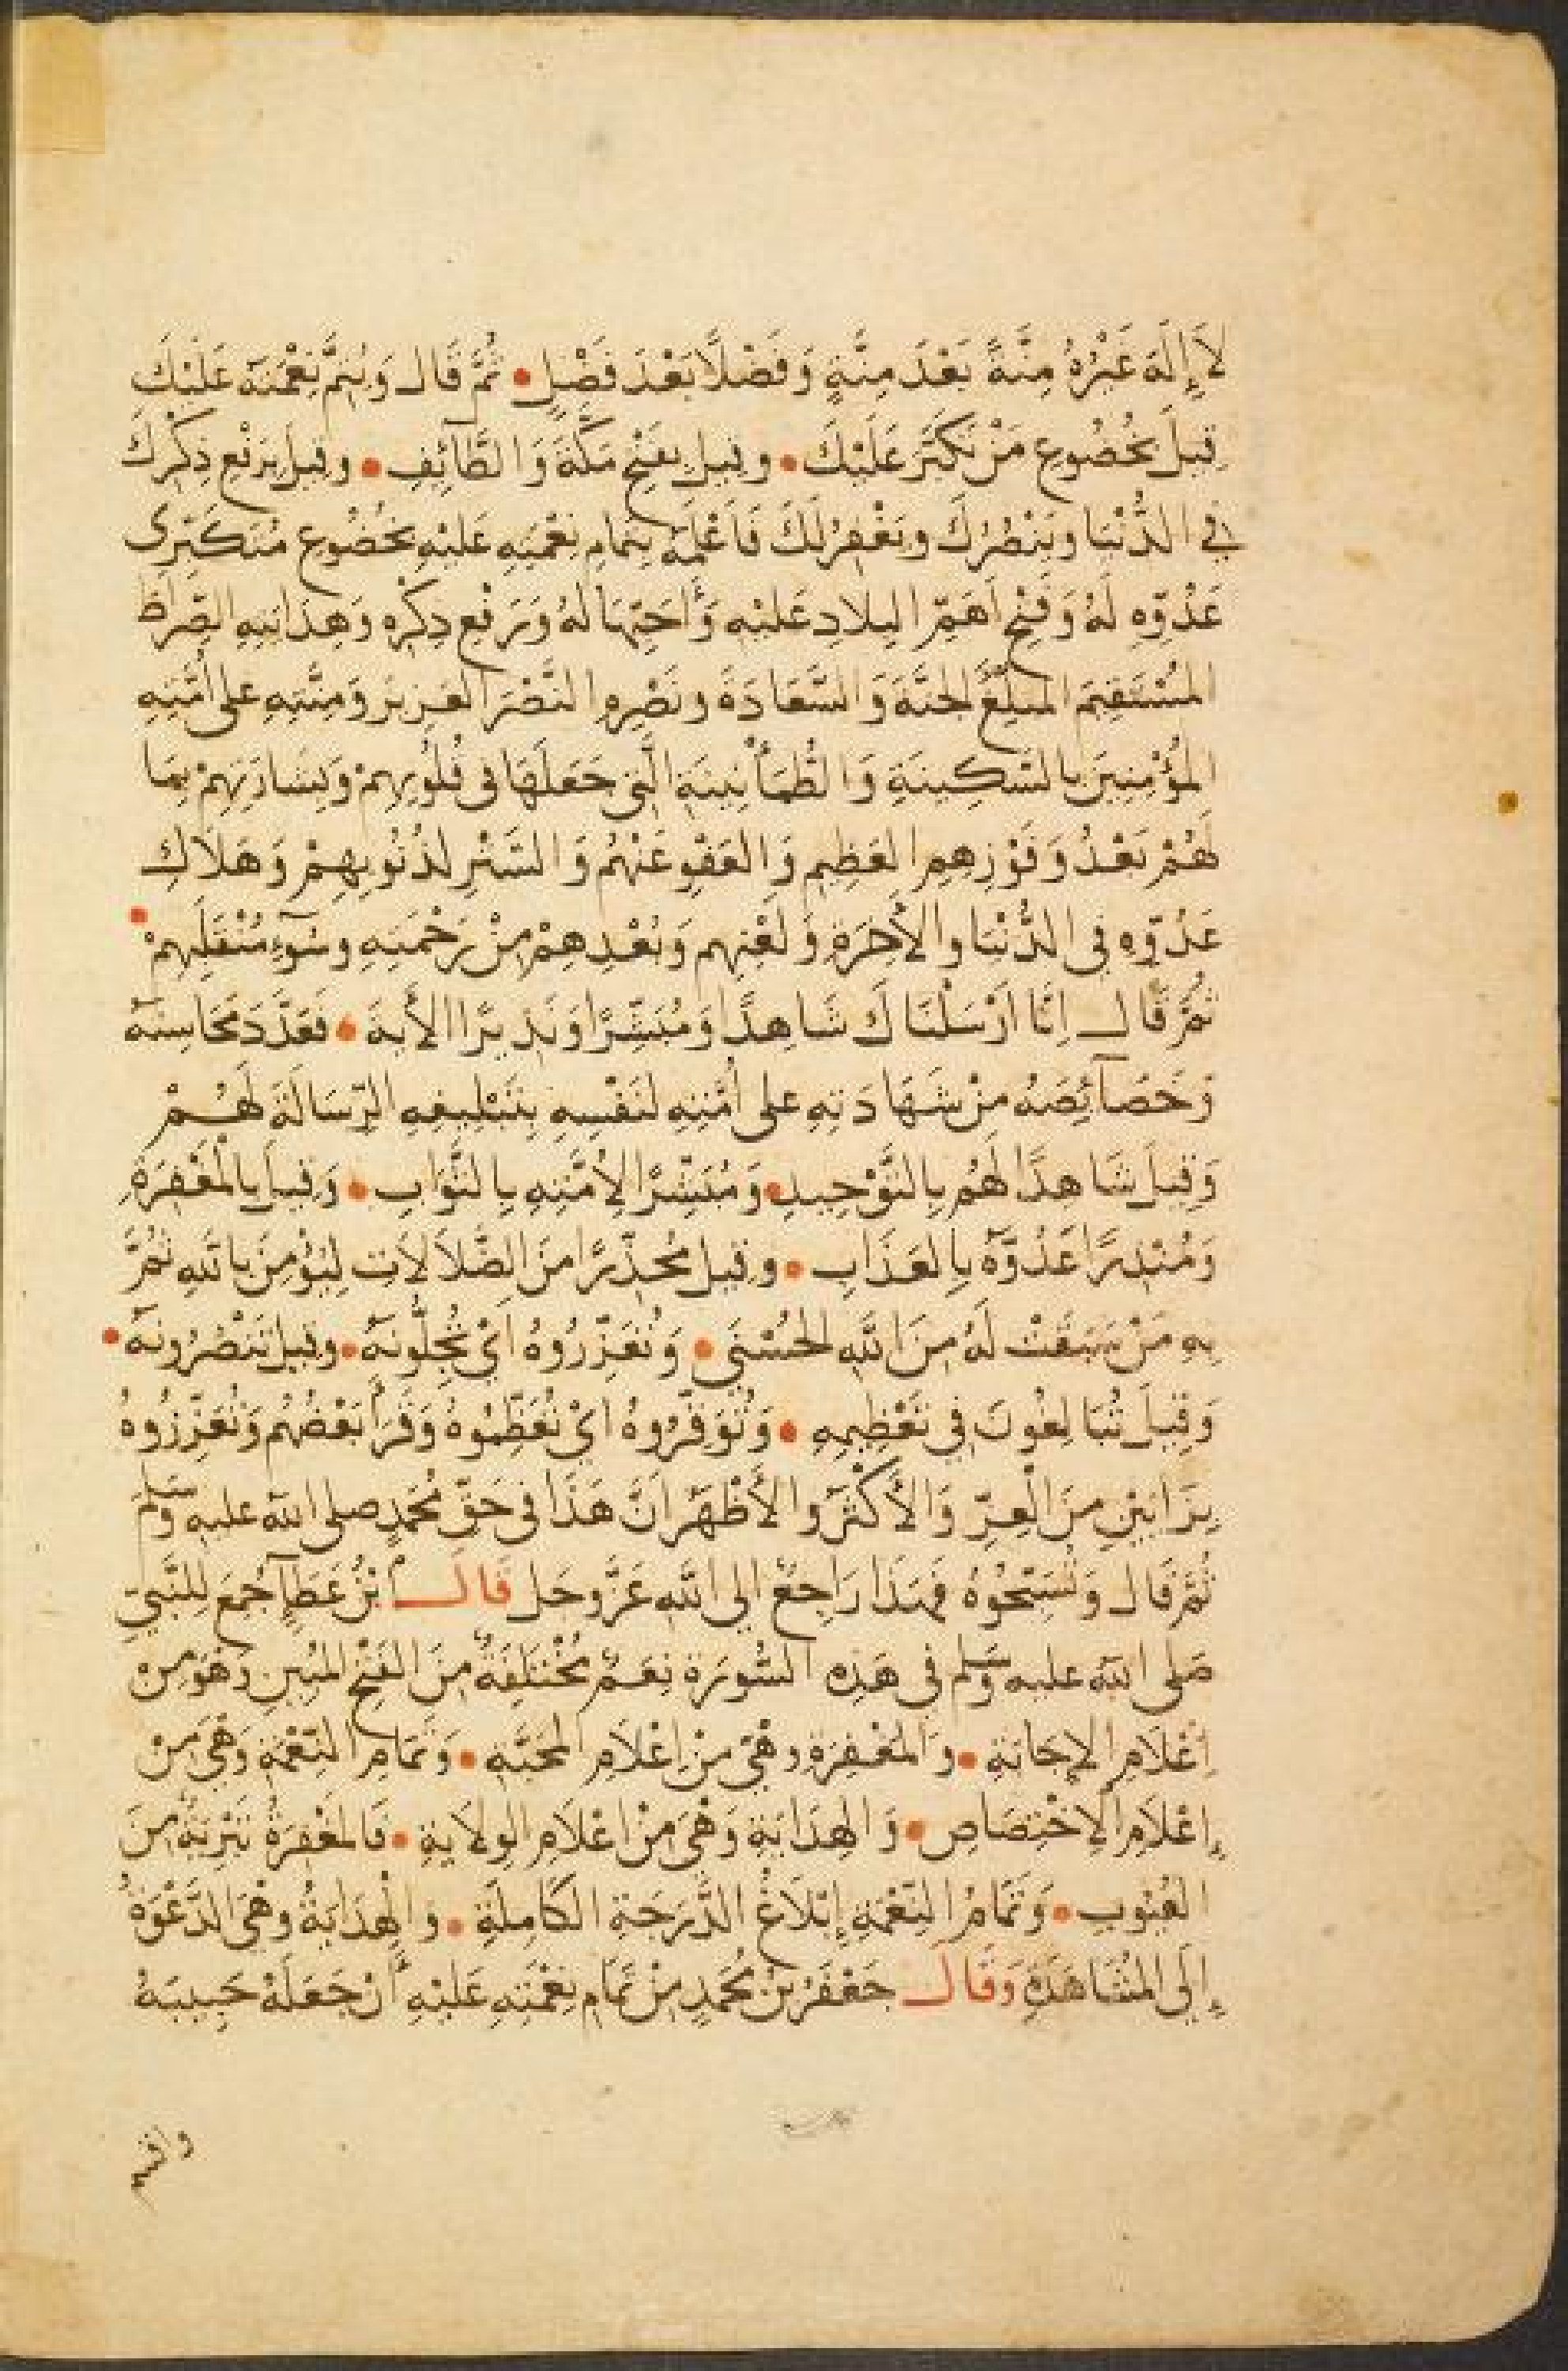 لَا إِلَهَ غَيْرُهُ مِنَّةً بَعْدَ مِنَّةٍ وَفَضْلًا بَعْدَ فَضْلٍ • ثُمَّ قَالَ وَيُتِمَّ نِعْمَتَهُ عَلَيْكَ
قِيلَ بِخُضُوعِ مَنْ تَكَبَّرَ عَلَيْكَ • وقيل بِفَتْحِ مَكَّةَ وَالطَّائِفِ • وقيل يَرْفَعُ ذِكْرَكَ
في الدُّنْيَا وَيَنْصُرُكَ وَيَغْفِرُ لَكَ فَأَعْلَمَهُ بِتَمَامِ نِعْمَتِهِ عَلَيْهِ بِخُضُوعِ مُتَكَبِّرِي
عَدُوِّهِ لَهُ وَفَتْحِ أَهَمِّ البِلَادِ عَلَيْهِ وَأَحَبِّهَا لَهُ وَرَفْعِ ذِكْرِهِ وَهِدَايَتِهِ الصِّرَاطَ
المُسْتَقِيمَ المُبَلِّغَ الجَنَّةَ وَالسَّعَادَةَ وَنَصْرِهِ النَّصْرَ العَزِيزَ وَمِنَّتِهِ على أُمَّتِهِ
المُؤْمِنِينَ بِالسَّكِينَةِ وَالطُّمَأْنِينَةِ الَّتِي جَعَلَهَا فِي قُلُوبِهِمْ وَبِشَارَتِهِمْ بِمَا
لَهُمْ بَعْدُ وَفَوْزِهِمِ العَظِيمِ وَالعَفْوِ عَنْهُمْ وَالسَّتْرِ لِذُنُوبِهِمْ وَهَلَاكِ
عَدُوِّهِ فِي الدُّنْيَا وَالأَخِرَةِ وَلَعْنِهِم وَبُعْدِهِمْ مِنْ رَحْمَتِهِ وسُوءِ مُنْقَلَبِهِمْ •
ثُمَّ قَالَ إِنَّا أَرْسَلْنَاكَ شَاهِدًا وَمُبَشِّرًا وَنَذِيرًا الأَيَةَ • فَعَدَّدَ مَحَاسِنَهُ
وَخَصَائِصَهُ مِنْ شَهَادَتِهِ على أُمَّتِهِ لِنَفْسِهِ بِتَبْلِيغِهِ الرِّسَالَةَ لَهُمْ
وَقِيلَ شَاهِدًا لَهُمْ بِالتَّوْحِيدِ • وَمُبَشِّرًا لِأُمَّتِهِ بِالثَّوَابِ • وَقِيلَ بِالْمَغْفِرَةِ
وَمُنْذِرًا عَدُوَّهُ بِالعَذَابِ • وقيل مُحَذِّرًا مِنَ الضَّلَالَاتِ لِيُؤْمِنَ بِاللهِ ثُمَّ
بِهِ مَنْ سَبَقَتْ لَهُ مِنَ اللهِ الحُسْنَى • وَتُعَزِّرُوهُ أَيْ تُجِلُّونَهُ • وقيل تَنْصُرُونَهُ •
وَقِيلَ تُبَالِغُونَ فِي تَعْظِيمِهِ • وَتُوَقِّرُوهُ أَيْ تُعَظِّمُوهُ وَقَرَأَ بَعْضُهُمْ وَتُعَزِّزُوهُ
بِزَايَيْنِ مِنَ الْعِزِّ وَالأَكْثَرُ وَالأَظْهَرُ أَنَّ هَذَا فِي حَقِّ مُحَمَّدٍ صلى الله عليه وسلم
ثُمَّ قَالَ وَتُسَبِّحُوهُ فَهَذَا رَاجِعٌ إلى اللهِ عَزَّ وجَل قَالَ ابْنُ عَطَاءٍ جُمِعَ لِلنَّبِيِّ
صَلى الله عليه وسلم في هَذِهِ السُّورَةِ نِعَمٌ مُخْتَلِفَةٌ مِنَ الفَتْحِ المُبِينِ وَهْوَ مِنْ
إِعْلَامِ الإِجَابَةِ • وَالمَغْفِرَةِ وَهْيَ مِنْ إِعْلَامِ المَحَبَّةِ • وَتَمَامِ النِّعْمَةِ وَهْيَ مِنْ
إِعْلَامِ الإِخْتِصَاصِ • وَالهِدَايَةِ وَهْيَ مِنْ إِعْلَامِ الوِلَايَةِ • فَالمَغْفِرَةُ تَبْرِئَةٌ مِنَ
العُيُوبِ • وَتَمَامُ النِّعْمَةِ إِبْلَاغُ الدَّرَجَةِ الكَامِلَةِ • وَالْهِدَايَةُ وَهْيَ الدَّعْوَةُ
إِلَى المُشَاهَدَةِ وَقَالَ جَعْفَرُ بْنُ مُحَمَّدٍ مِنْ تَمَامِ نِعْمَتِهِ عَلَيْهِ أَنْ جَعَلَهُ حَبِيبَهُ
واقسم